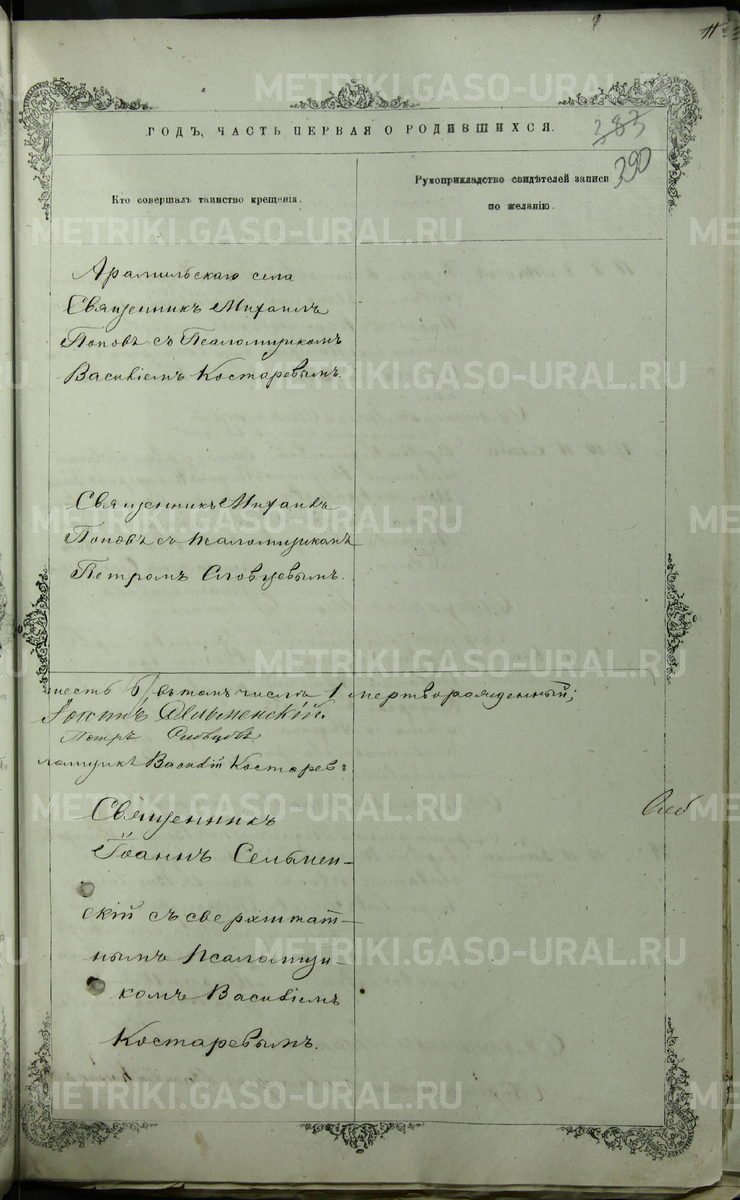 11
ГОДЪ, ЧАСТЬ ПЕРВАЯ О РОДИВШИХСЯ.
383
390
Кто совершалъ таинство крещенія.
Рукоприкладство свидѣтелей записи
по желанію.
Арамильскаго села
Священникъ Михаилъ
Поповъ съ Псаломщикомъ
Василіемъ Костаревымъ.
Священникъ Михаилъ
Поповъ съ псаломщикомъ
Петромъ Словцевымъ.
шесть (6) въ томъ числѣ 1 мертворожденный;
Петръ Словцовъ
ломщикъ Василій Костаревъ
Священникъ
Іоаннъ Сельмен-
скій съ сверхштат-
нымъ псаломщи-
комъ Василіемъ
Костаревымъ.
METRIKI.GASO-URAL.RU